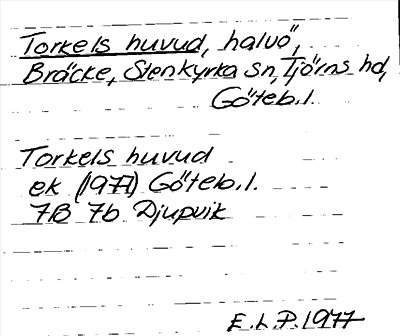 Torkels huvud, halvö,
Bräcke, Stenkyrka sn, Tjörns hd,
Göteb.l.
Torkels huvud
ek (1977) Göteb.l.
7B 7b Djupvik
E.L.P. 1977